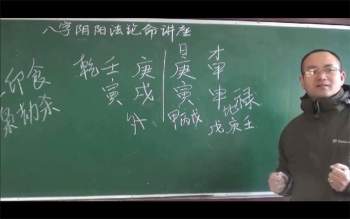 八字阴阳法论命讲座
日 才
印食 乾 壬 庚 庚 甲
寅 戌 寅 申 比禄
劫杀 甲丙戊 戊庚壬